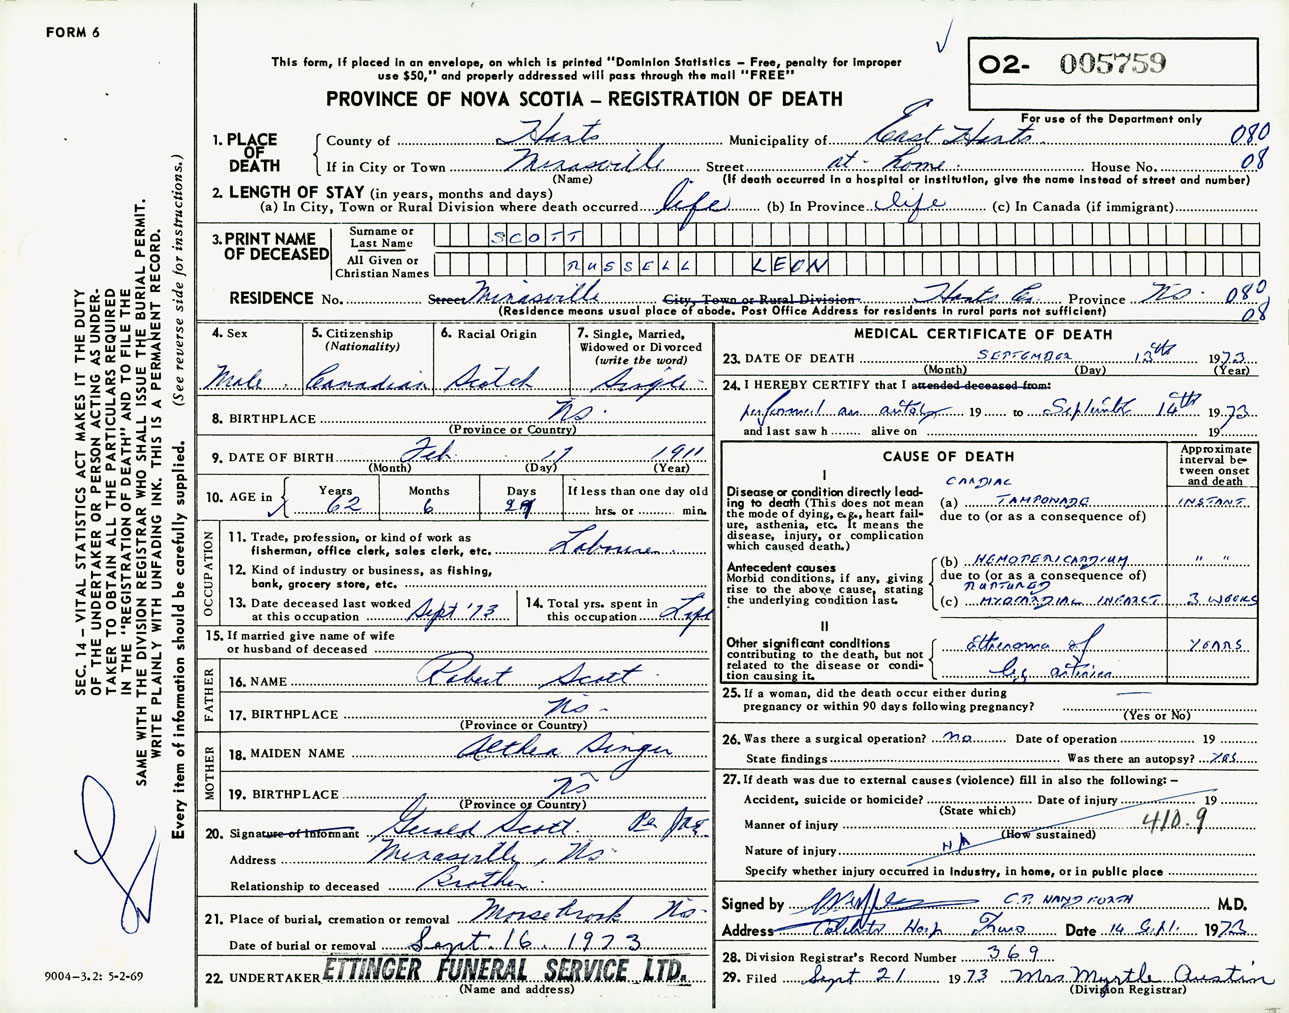 FORM 6
This form, if placed in an envelope, on which is printed "Dominion Statistics – Free, penalty for improper
use $50," and properly addressed will pass through the mail "FREE"
PROVINCE OF NOVA SCOTIA – REGISTRATION OF DEATH
O2- 005759
For use of the Department only
1. PLACE OF DEATH
County of Hants Municipality of East Hants 080
If in City or Town Street at home House No. 08
(Name) (If death occurred in a hospital or institution, give the name instead of street and number)
2. LENGTH OF STAY (in years, months and days)
(a) In City, Town or Rural Division where death occurred life (b) In Province life (c) In Canada (if immigrant)
3. PRINT NAME OF DECEASED
Surname or Last Name SCOTT
All Given or Christian Names RUSSELL LEON
RESIDENCE No. Street City, Town or Rural Division Hants Co. Province NS. 080
(Residence means usual place of abode. Post Office Address for residents in rural parts not sufficient) 08
4. Sex
Male
5. Citizenship
(Nationality)
Canadian
6. Racial Origin
Scotch
7. Single, Married,
Widowed or Divorced
(write the word)
Single
8. BIRTHPLACE NS.
(Province or Country)
9. DATE OF BIRTH Feb 17 1911
(Month) (Day) (Year)
10. AGE in
Years Months Days If less than one day old
62 6 27 hrs. or min.
OCCUPATION
11. Trade, profession, or kind of work as
fisherman, office clerk, sales clerk, etc. Labourer
12. Kind of industry or business, as fishing,
bank, grocery store, etc.
13. Date deceased last worked
at this occupation Sept '73
14. Total yrs. spent in
this occupation Life
15. If married give name of wife
or husband of deceased
FATHER
16. NAME Robert Scott
17. BIRTHPLACE NS
(Province or Country)
MOTHER
18. MAIDEN NAME Althea Singer
19. BIRTHPLACE NS
(Province or Country)
20. Signature of informant Gerald Scott Per
Address NS
Relationship to deceased Brother
21. Place of burial, cremation or removal Moose Brook NS
Date of burial or removal Sept. 16, 1973
22. UNDERTAKER ETTINGER FUNERAL SERVICE LTD.
(Name and address)
MEDICAL CERTIFICATE OF DEATH
23. DATE OF DEATH SEPTEMBER 13th 1973
(Month) (Day) (Year)
24. I HEREBY CERTIFY that I attended deceased from:
performed an 19 to September 14th 1973
and last saw h alive on 19
CAUSE OF DEATH
Approximate
interval be-
tween onset
and death
I
Disease or condition directly lead-
ing to death (This does not mean
the mode of dying, e.g., heart fail-
ure, asthenia, etc. It means the
disease, injury, or complication
which caused death.)
CARDIAC
(a) TAMPONADE INSTANT
due to (or as a consequence of)
Antecedent causes
Morbid conditions, if any, giving
rise to the above cause, stating
the underlying condition last.
(b) HEMOPERICARDIUM " "
due to (or as a consequence of)
RUPTURED
(c) MYOCARDIAL INFARCT 3 WEEKS
II
Other significant conditions
contributing to the death, but not
related to the disease or condi-
tion causing it.
Atheroma of YEARS
leg arteries
25. If a woman, did the death occur either during
pregnancy or within 90 days following pregnancy? —
(Yes or No)
26. Was there a surgical operation? no Date of operation 19
State findings Was there an autopsy? yes
27. If death was due to external causes (violence) fill in also the following: –
Accident, suicide or homicide? Date of injury 19
(State which)
Manner of injury 410.9
(How sustained)
Nature of injury NA
Specify whether injury occurred in industry, in home, or in public place
Signed by C.P. HANDFORTH M.D.
Address Hosp Truro Date 14 Sept. 1973
28. Division Registrar's Record Number 369
29. Filed Sept 21 1973 Mrs. Myrtle Austin
(Division Registrar)
SEC. 14 – VITAL STATISTICS ACT MAKES IT THE DUTY
OF THE UNDERTAKER OR PERSON ACTING AS UNDER-
TAKER TO OBTAIN ALL THE PARTICULARS REQUIRED
IN THE "REGISTRATION OF DEATH" AND TO FILE THE
SAME WITH THE DIVISION REGISTRAR WHO SHALL ISSUE THE BURIAL PERMIT.
WRITE PLAINLY WITH UNFADING INK. THIS IS A PERMANENT RECORD.
Every item of information should be carefully supplied. (See reverse side for instructions.)
9004-3.2: 5-2-69